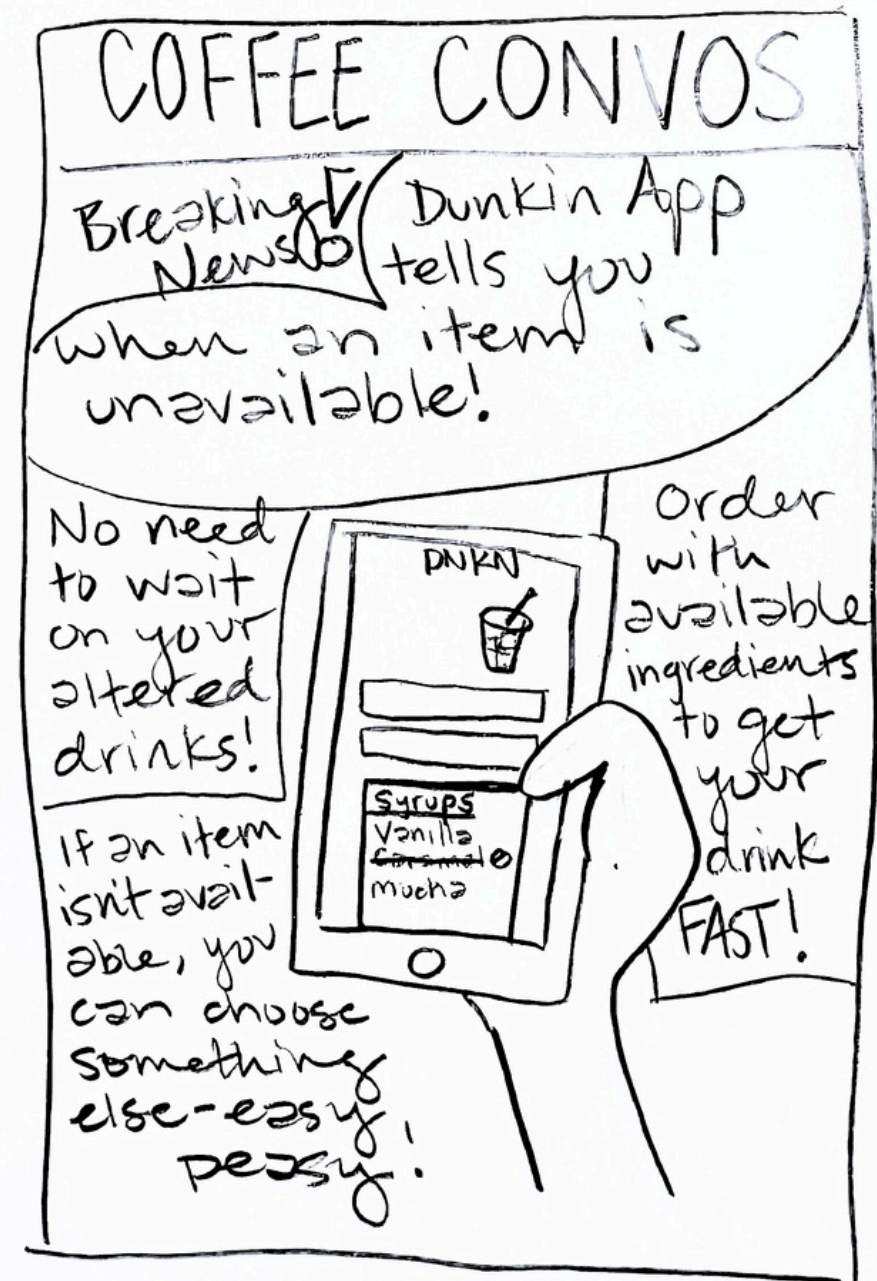 COFFEE CONVOS
Breaking
News!
Dunkin App
tells you
when an item is
unavailable!
No need
to wait
on your
altered
drinks!
DNKN
Syrups
Vanilla
Caramel
mocha
Order
with
available
ingredients
to get
your
drink
FAST!
If an item
isn't avail-
able, you
can choose
something
else-easy
peasy!